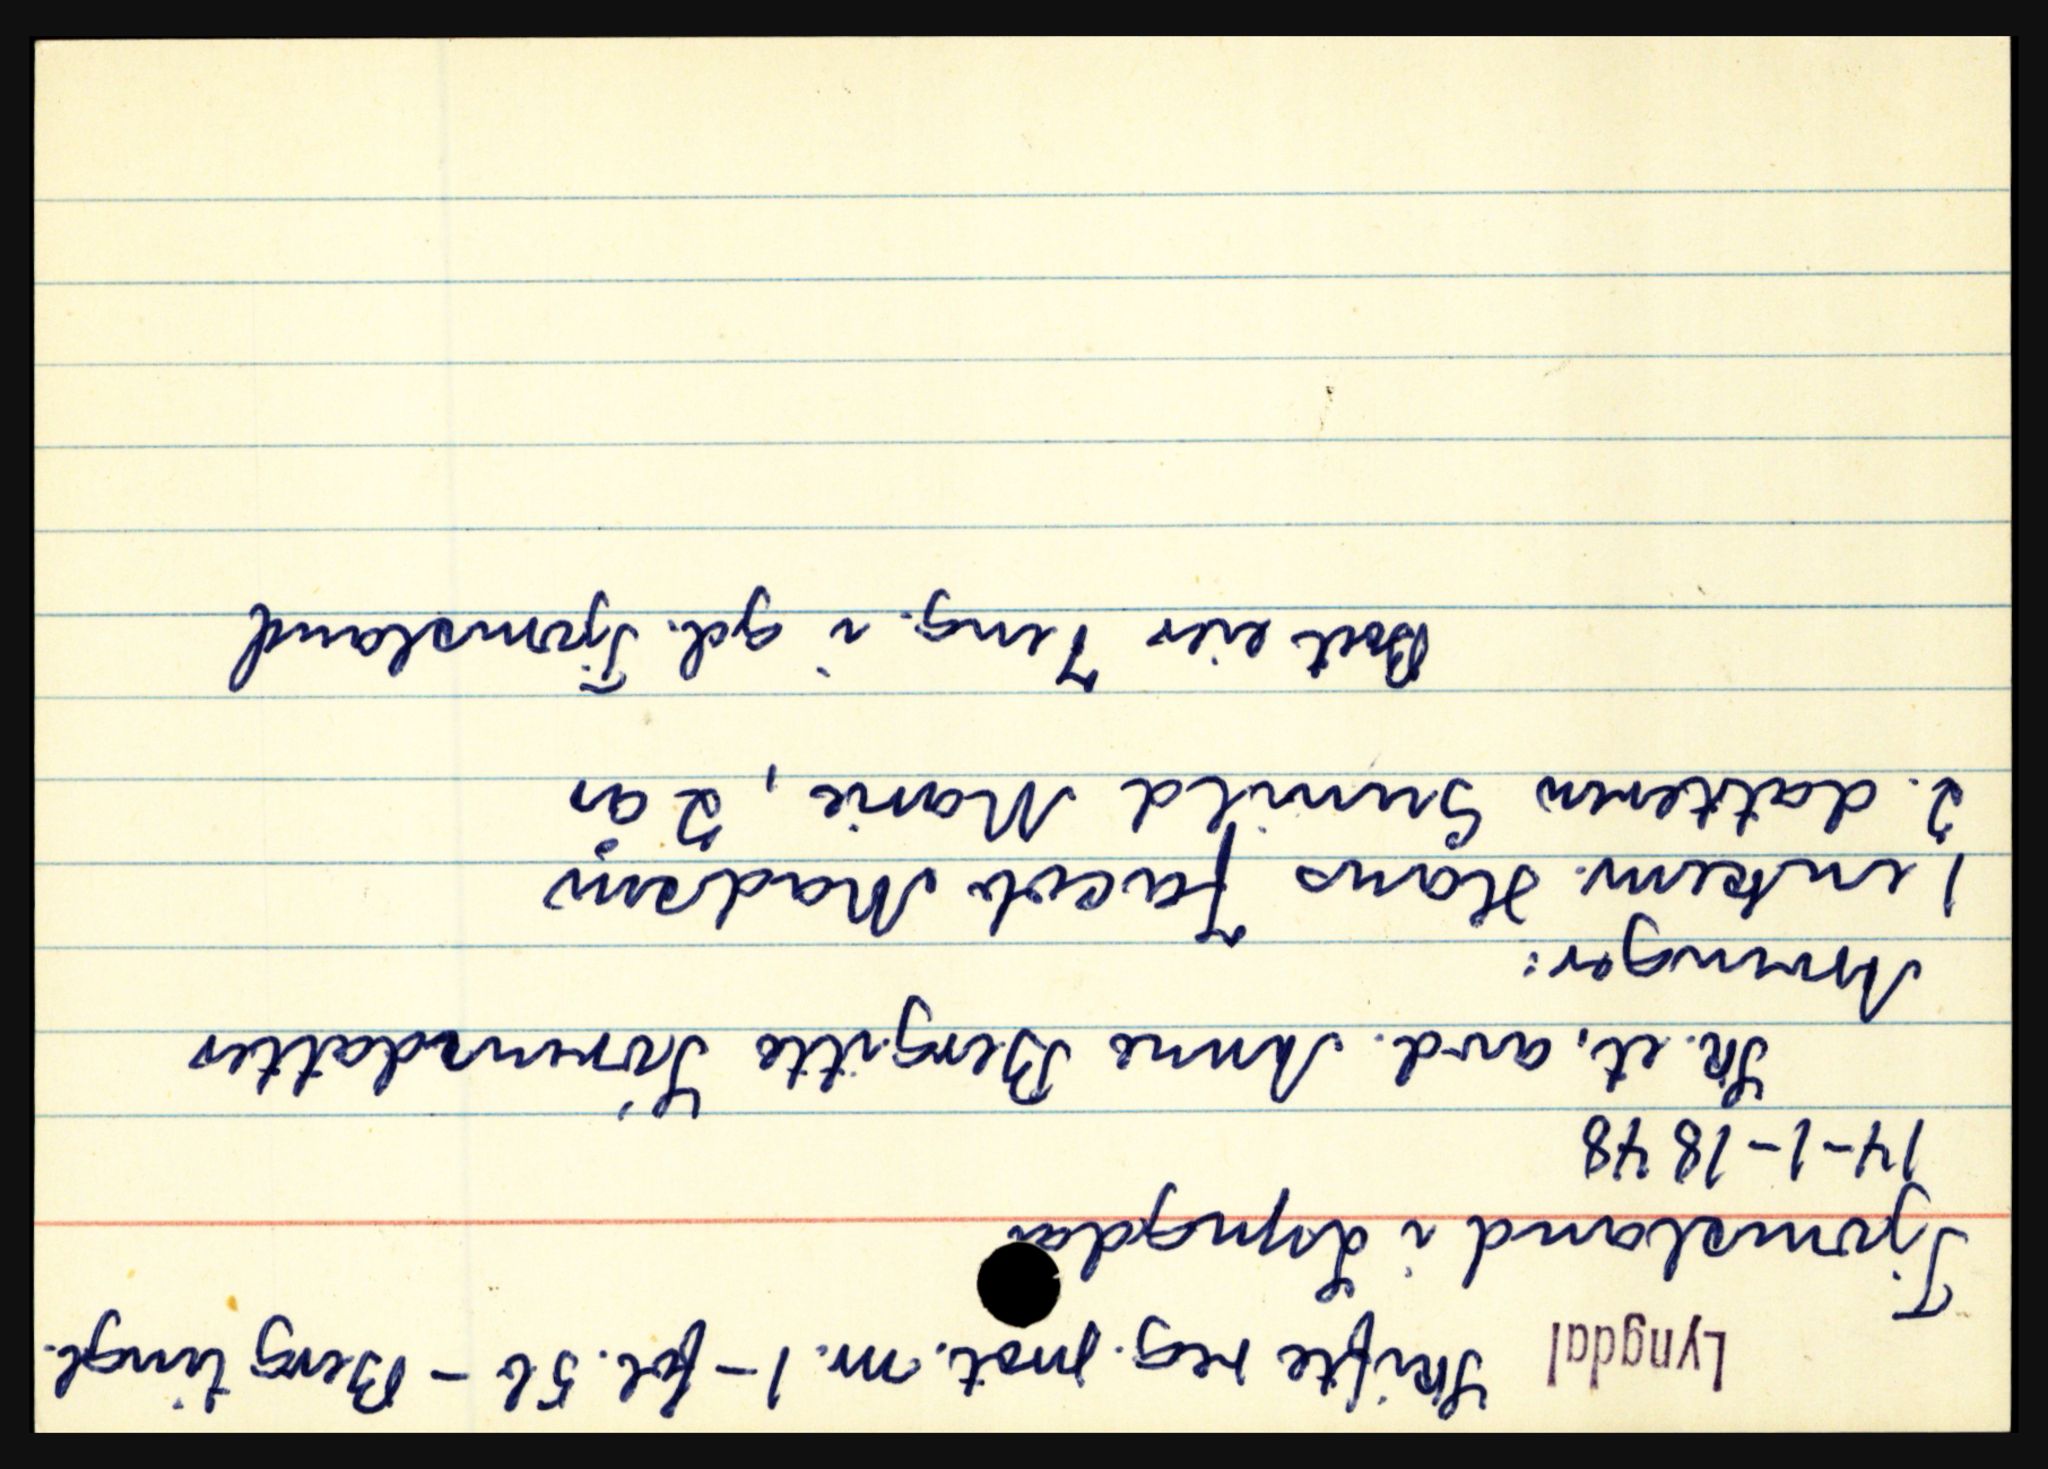 Lyngdal Skifte reg. prot. nr. 1 - fol. 56 - Berg tingl.
Tjomsland i Lyngdal
14-1-1878
Sk. et. avd. Anne Bergitte Sørensdatter
Arvinger:
1 enkem. Hans Jacob Madsen
2. datteren Gunild Marie, 2 år
Boet eier 7 eng. i gd. Tjomsland